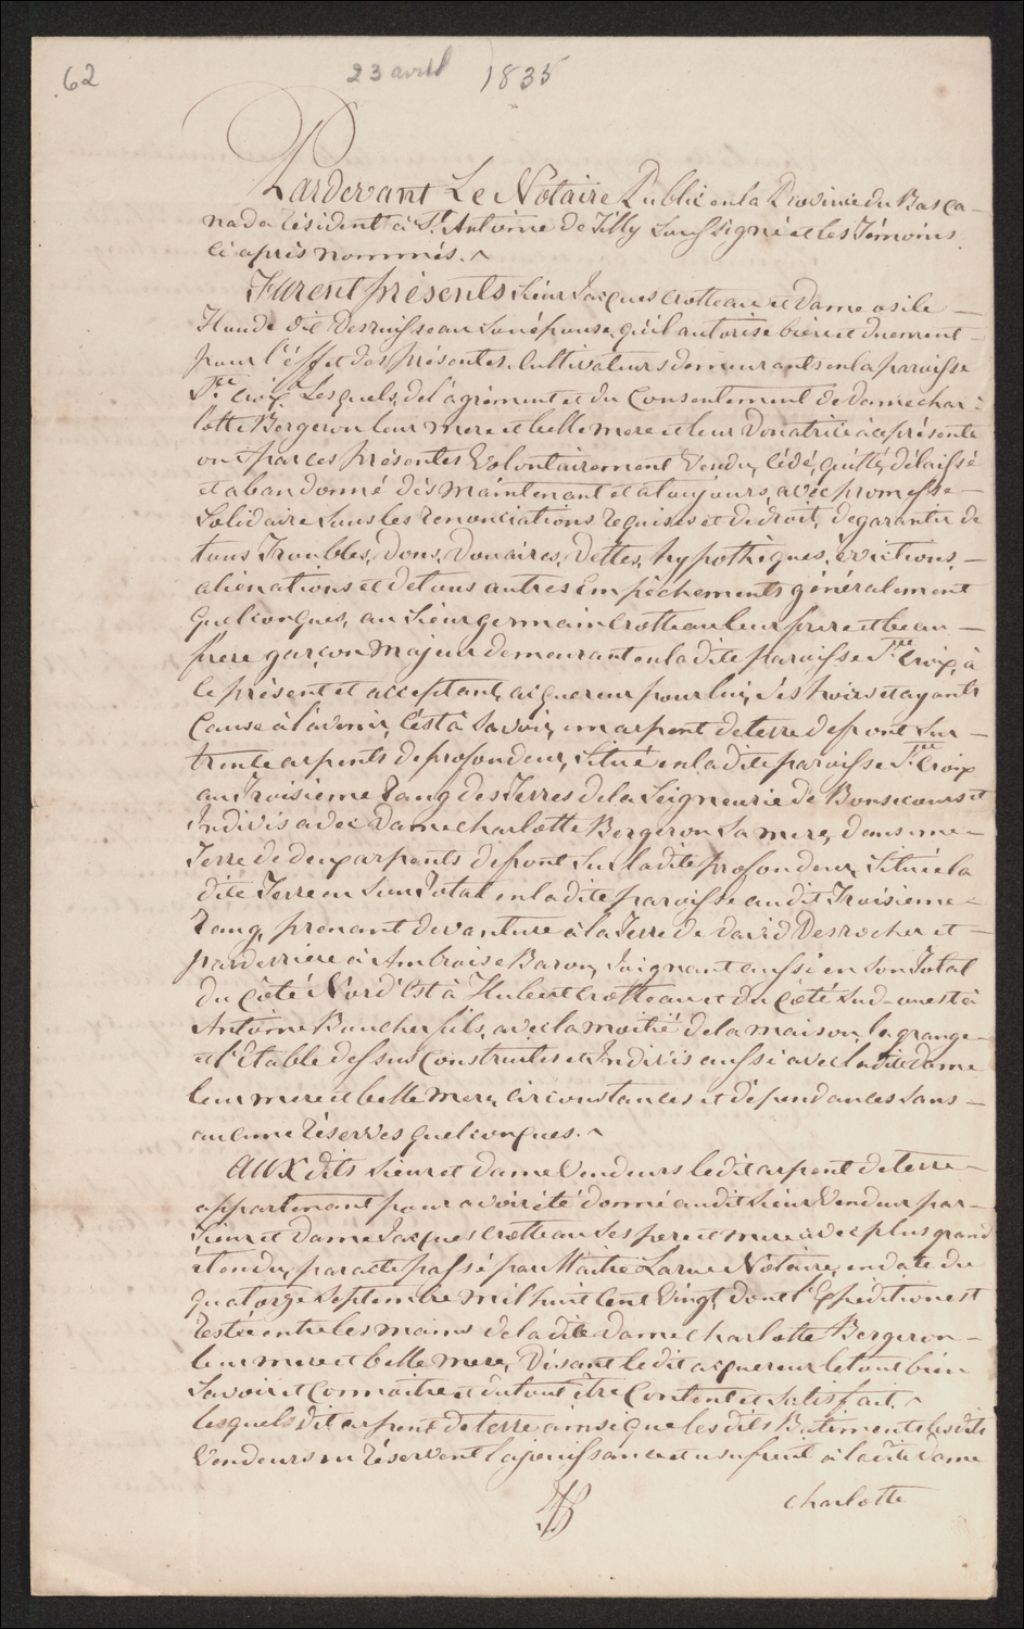 62
23 avril 1835
Pardevant Le Notaire Public en la Province du Bas Ca-
nada résident à St. Antoine de Tilly Soussigné et les Témoins
ci après nommés.
Furent présents Sieur Jacques Crotteau et Dame
Houde dit Desruisseau Son épouse, qu'il autorise bien et duement -
pour l'éffet des présentes, Cultivateurs demeurants en la paroisse
Ste. Croix, Lesquels, de l'agrément et du Consentement de dame Char-
lotte Bergeron leur mere et belle mere et leur Donatrice à ce présente
ont par ces présentes Volontairement Vendu, cédé, quitté, délaissé
et abandonné dès maintenant et à toujours, avec promesse -
Solidaire Sous les renonciations requises et de droit, de garantir de
tous Troubles, Dons, Douaires, Dettes, hypothèques, évictions, -
aliénations et de tous autres Empêchements généralement
quelconques, au Sieur germain Crotteau leur frere et beau -
frere garçon Majeur demeurant en la dite paroisse Ste. Croix, à
ce présent et acceptant, acquereur pour lui, Ses hoirs et ayants
Cause à l'avenir, C'est à Savoir, un arpent de terre de front Sur -
trente arpents de profondeur, Situé en la dite paroisse Ste. Croix
au Troisieme Rang des Terres de la Seigneurie de Bonsecours et
Indivis avec Dame Charlotte Bergeron Sa mere, dans une -
Terre de deux arpents de front Sur la dite profondeur, Située la
dite Terre en Son Total en la dite paroisse au dit Troisieme -
Rang, prenant devanture à la Terre de David Desrocher et -
par derriere à Ambroise Baron, Joignant aussi en Son Total
du Côté Nord'Est à Hubert Crotteau et du Côté Sud-ouest à
Antoine Boucher fils, avec la moitié de la maison, la grange -
et l'Etable dessus Construites et Indivis aussi avec la dite Dame
leur mere et belle mere, circonstances et dépendances Sans -
aucune Réserves quelconques.
AUX dits Sieur et Dame Vendeurs le dit arpent de terre -
appartenant pour avoir été donné au dit Sieur Vendeur par -
Sieur et Dame Jacques Crotteau Ses pere et mere avec plus grand
étendu, par acte passé par Maitre Larue Notaire, en date du
quatorze Septembre mil huit Cent Vingt, dont l'Expédition est
Restée entre les mains de la dite Dame Charlotte Bergeron -
leur mere et belle mere, Disant le dit acquereur le tout bien
Savoir et Connaître et du tout être Content et Satisfait.
lesquels dit arpent de terre ainsi que les dits Batiments les dits
Vendeurs en réservent la jouissance et usufruit à la dite Dame
Charlotte